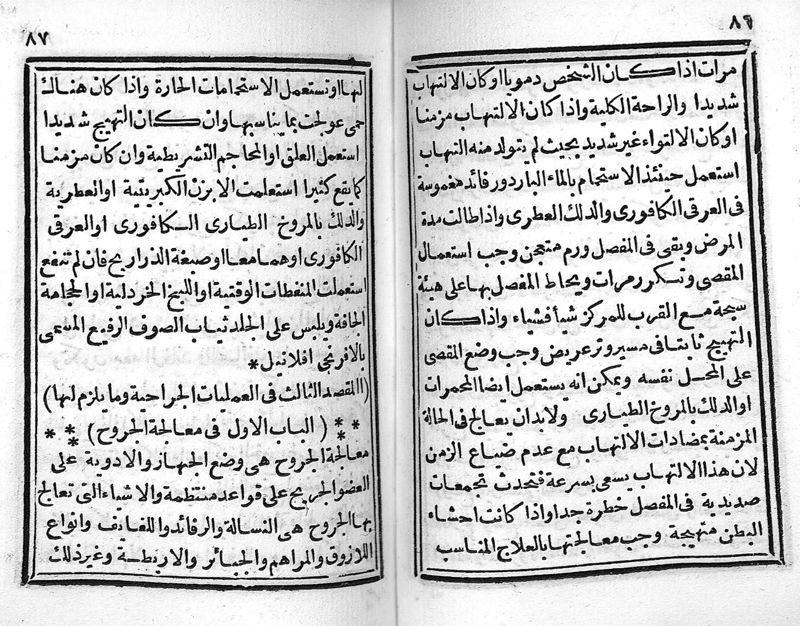 ٨٦
مرات اذا كان الشخص دمويا او كان الالتهاب
شديدا والراحة الكلية واذا كان الالتهاب مزمنا
او كان الالتواء غير شديد بحيث لم يتولد منه التهاب
استعمل حينئذ الاستحمام بالماء البارد ورفائد مغموسة
فى العرقى الكافورى والدلك العطرى واذا طالت مدة
المرض وبقى فى المفصل ورم متعجن وجب استعمال
المقصى وتكرر مرات ويحاط المفصل بها على هيئة
سبحة مع القرب للمركز شيأ فشياء واذا كان
التهيج ثابتا فى مسير وتر عريض وجب وضع المقصى
على المحل نفسه ويمكن انه يستعمل ايضا المحمرات
او الدلك بالمروخ الطيارى ولابد ان يعالج فى الحالة
المزمنة بمضادات الالتهاب مع عدم ضياع الزمن
لان هذا الالتهاب يسعى بسرعة فتحدث تجمعات
صديدية فى المفصل خطرة جدا واذا كانت احشاء
البطن متهيجة وجب معالجتها بالعلاج المناسب
٨٧
لها او تستعمل الاستحمامات الحارة واذا كان هناك
حمى عولجت بما يناسبها وان كان التهيج شديدا
استعمل العلق او المحاجم التشريطية وان كان مزمنا
كما يقع كثيرا استعلمت الابزن الكبريتية او العطرية
والدلك بالمروخ الطيارى الكافورى او العرقى
الكافورى او هما معا او صبغة الذراريح فان لم تنفع
استعملت المنفطات الوقتية او اللبخ الخردلية او الحجامة
الجافة ويلبس على الجلد ثياب الصوف الرفيع المسمى
بالافرنجى افلانيل *
(المقصد الثالث فى العمليات الجراحية وما يلزم لها)
** (الباب الاول فى معالجة الجروح) ***
معالجة الجروح هى وضع الجهاز والادوية على
العضو الجريح على قواعد منتظمة والاشياء التى تعالج
بها الجروح هى النسالة والرفائد واللفايف وانواع
اللازوق والمراهم والجبائر والاربطة وغير ذلك